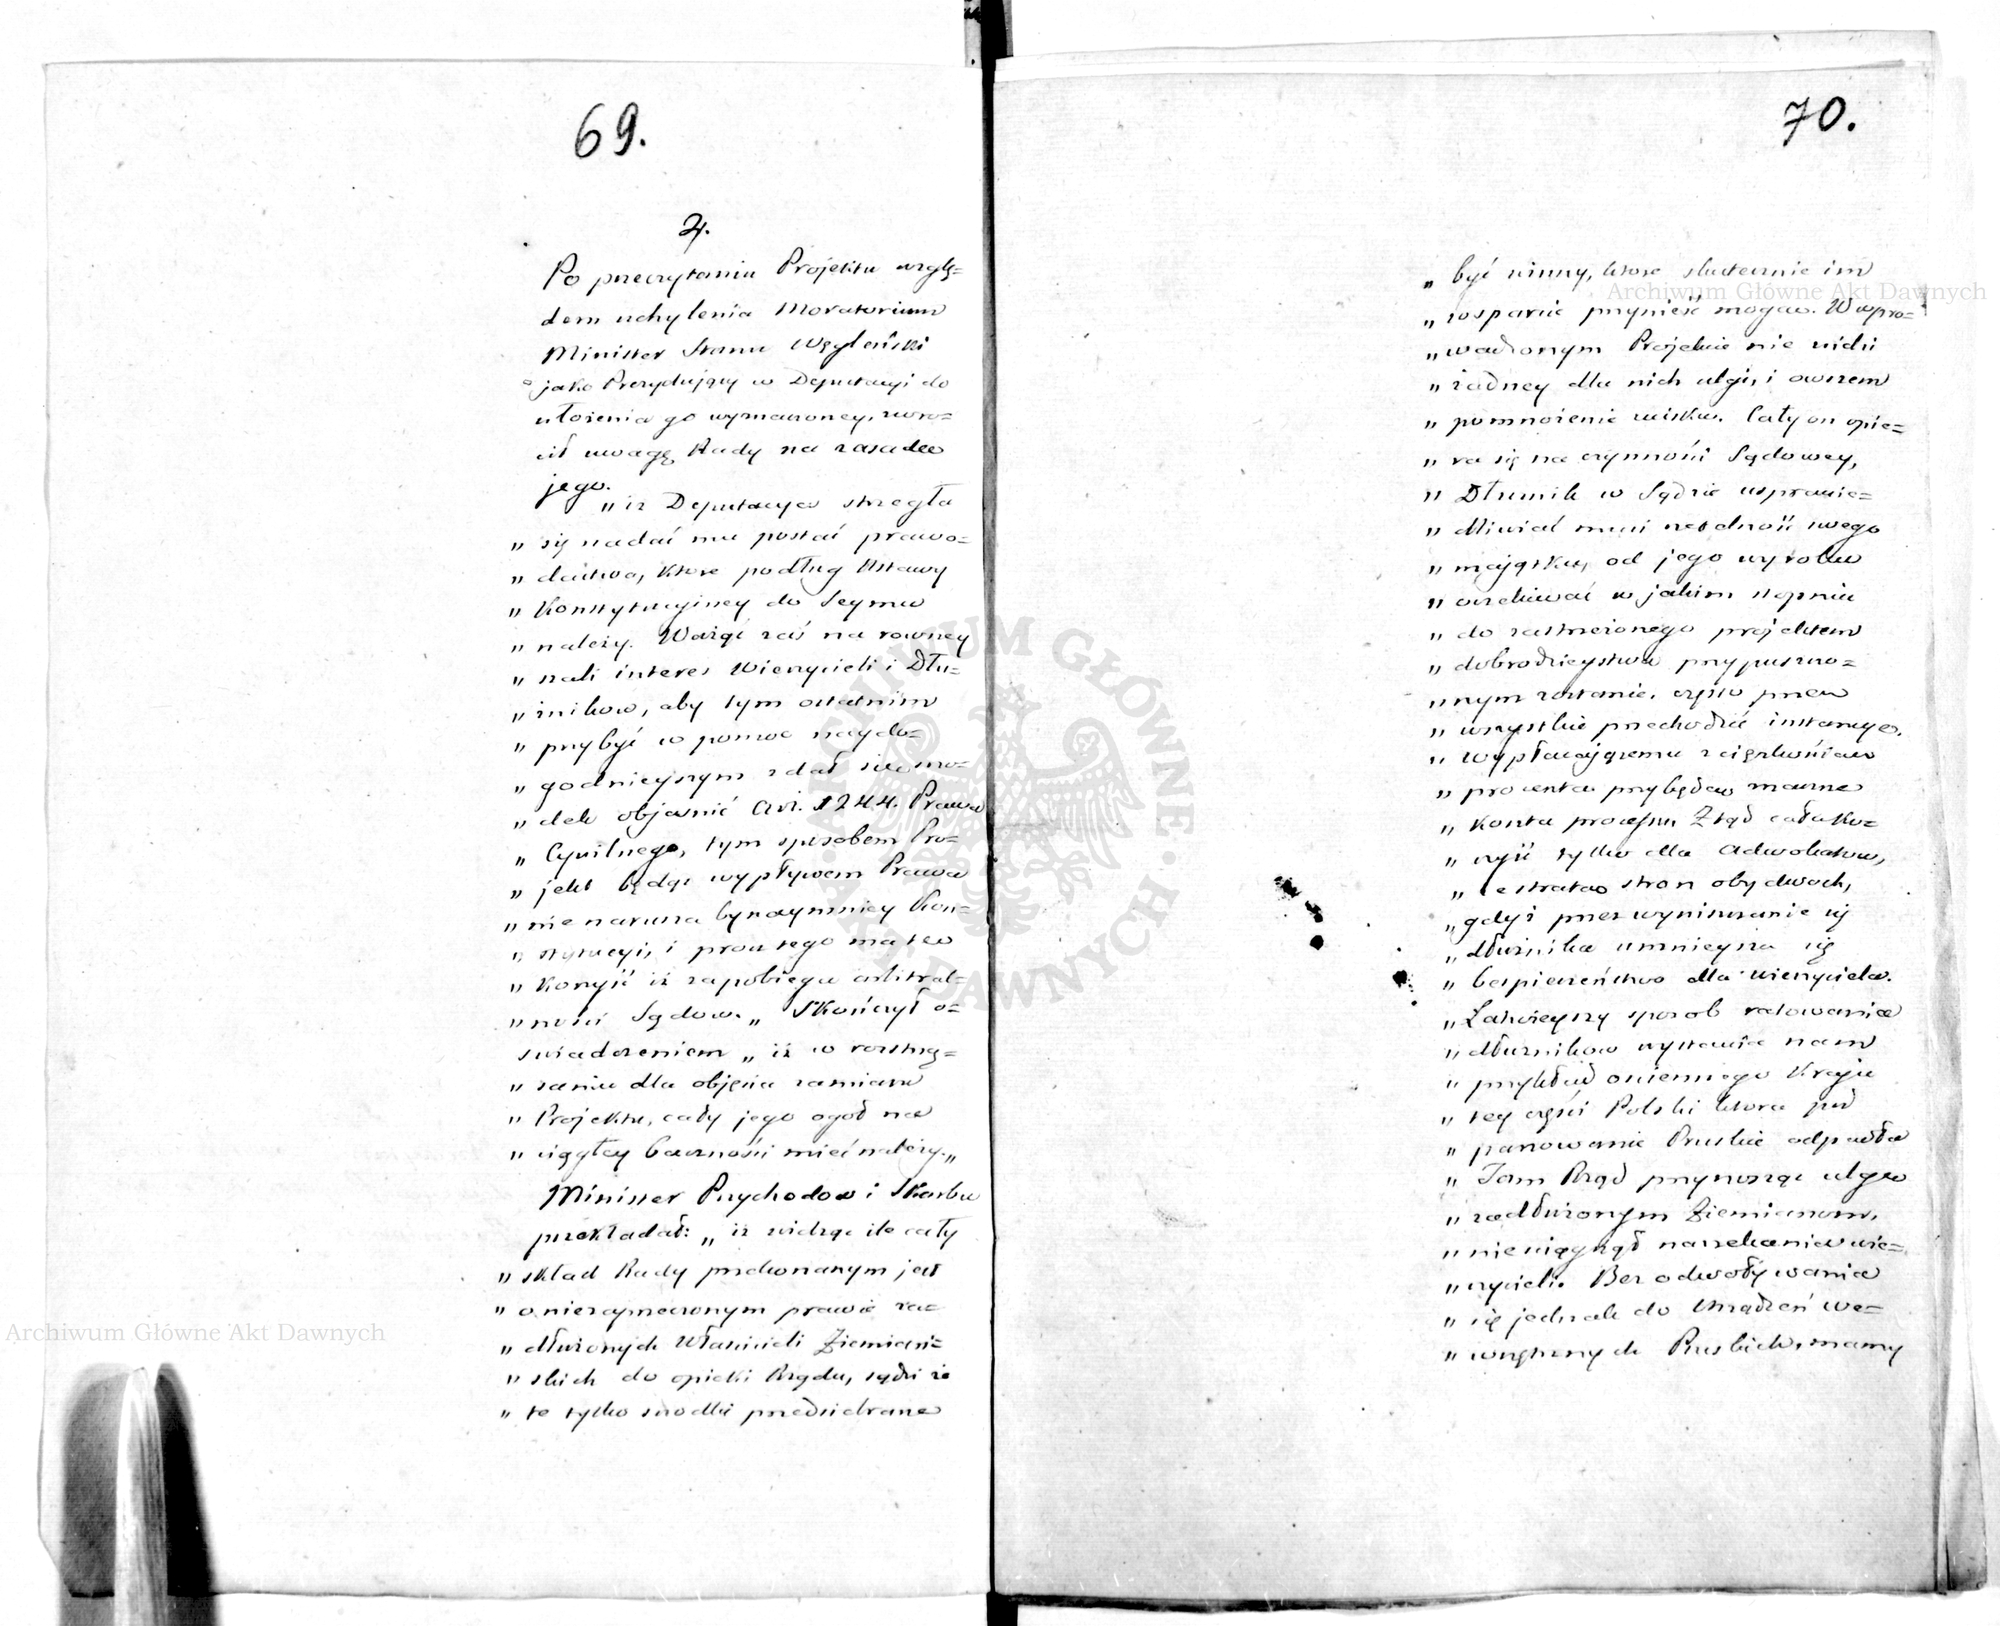 69.
2.
Po przeczytaniu Projektu wzglę=
dem uchylenia Moratorium
Minister Stanu Węgleński
jako Prezydujący w Deputacyi do
ułożenia go wyznaczoney, zwró=
cił uwagę Rady na zasadę
jego.
„ iż Deputacya strzegła
„ się nadać mu postać prawo=
„ dawtwa, które podług Ustawy
„ Konstytucyiney do Seymu
„ należy. Ważąc zaś na rowney
„ szali interes Wierzycieli i Dłu=
„ żnikow, aby tym ostatnim
„ przybyć w pomoc naydo=
„ godnieyszym zdał się śro=
„ dek objaśnić Art. 1244. Prawa
„ Cywilnego, tym sposobem Pro=
„ jekt będąc wypływem Prawa
„ nie narusza bynaymniey Kon=
„ stytucyi, i procz tego ma tę
„ korzyść iż zapobiega arbitral=
„ ności Sądow. „ Skończył o=
świadczeniem „ iż w roztrzą=
„ saniu dla objęcia zamiaru
„ Projektu, cały jego ogoł na
„ ciągłey baczności mieć należy. „
Minister Przychodow i Skarbu
przekładał: „ iż widząc ile cały
„ skład Rady przekonanym jest
„ o niezaprzeczonym prawie za=
„ dłużonych Właścicieli Ziemiań=
„ skich do opieki Rządu, sądzi że
„ te tylko srodki przedsiebrane
70.
„ być winny, ktore skutecznie im
„ wsparcie przynieść mogą. W wpro=
„ wadzonym Projekcie nie widzi
„ żadney dla nich ulgi, i owszem
„ pomnożenie ucisku. Cały on opie=
„ ra się na czynności Sądowey,
„ Dłużnik w Sądzie usprawie=
„ dliwiać musi rzetelność swego
„ majątku, od jego wyroku
„ oczekiwać w jakim stopniu
„ do zastrzeżonego projektem
„ dobrodzieystwa przypuszczo=
„ nym zostanie, czyli przez
„ wszystkie przechodzić instancye.
„ wypłacającemu z ciężkością
„ procenta przybędą marne
„ koszta processu. Ztąd cała ko=
„ rzyść tylko dla Adwokatow,
„ a strata stron obydwoch,
„ gdyż przez wyniszczenie się
„ dłużnika umnieysza się
„ bespieczeństwo dla wierzyciela.
„ Łatwieyszy sposob ratowania
„ dłużnikow wystawia nam
„ przykład osciennego Kraju
„ tey części Polski ktora pod
„ panowanie Pruskie odpadła
„ Tam Rząd przynosząc ulgę
„ zadłużonym Ziemianom,
„ nie ściągnął narzekania wie=
„ rzycieli. Bez odwoływania
„ się jednak do Urządzeń we=
„ wnętrznych Pruskich, mamy
Archiwum Główne Akt Dawnych
Archiwum Główne Akt Dawnych
ARCHIWUM GŁÓWNE · AKT DAWNYCH ·